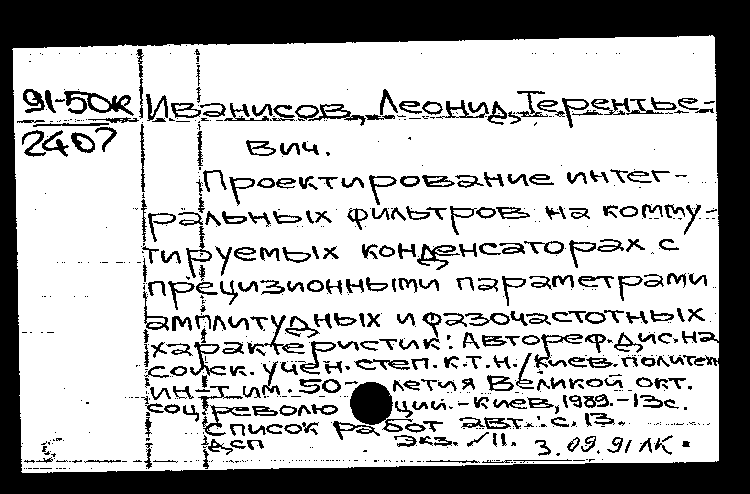 91-50К Иванисов, Леонид Терентье-
2407 вич.
Проектирование интег-
ральных фильтров на комму-
тируемых конденсаторах с
прецизионными параметрами
амплитудных и фазочастотных
характеристик: Автореф. дис. на
соиск. учен. степ. к.т.н. / Киев. политехн
ин-т им. 50-летия Великой окт.
соц революции. - Киев, 1989. - 13с.
Список работ авт.: с. 13.
дсп экз. /11. 3.09.91 ЛК